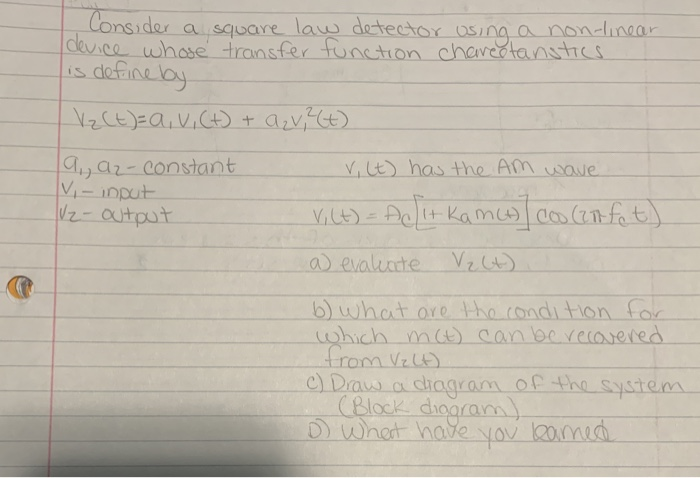 Consider a square law detector using a non-linear
device whose transfer function charectaristics
is define by
V₂(t)=a₁V₁(t) + a₂V₁²(t)
a₁, a₂ - constant V₁(t) has the AM wave
V₁ - input
V₂ - output V₁(t) = Ac[1+ Kam(t)] cos(2πfct)
a) evaluate V₂(t)
b) what are the condition for
which m(t) can be recovered
from V₂(t)
c) Draw a diagram of the system
(Block diagram)
D) What have you learned